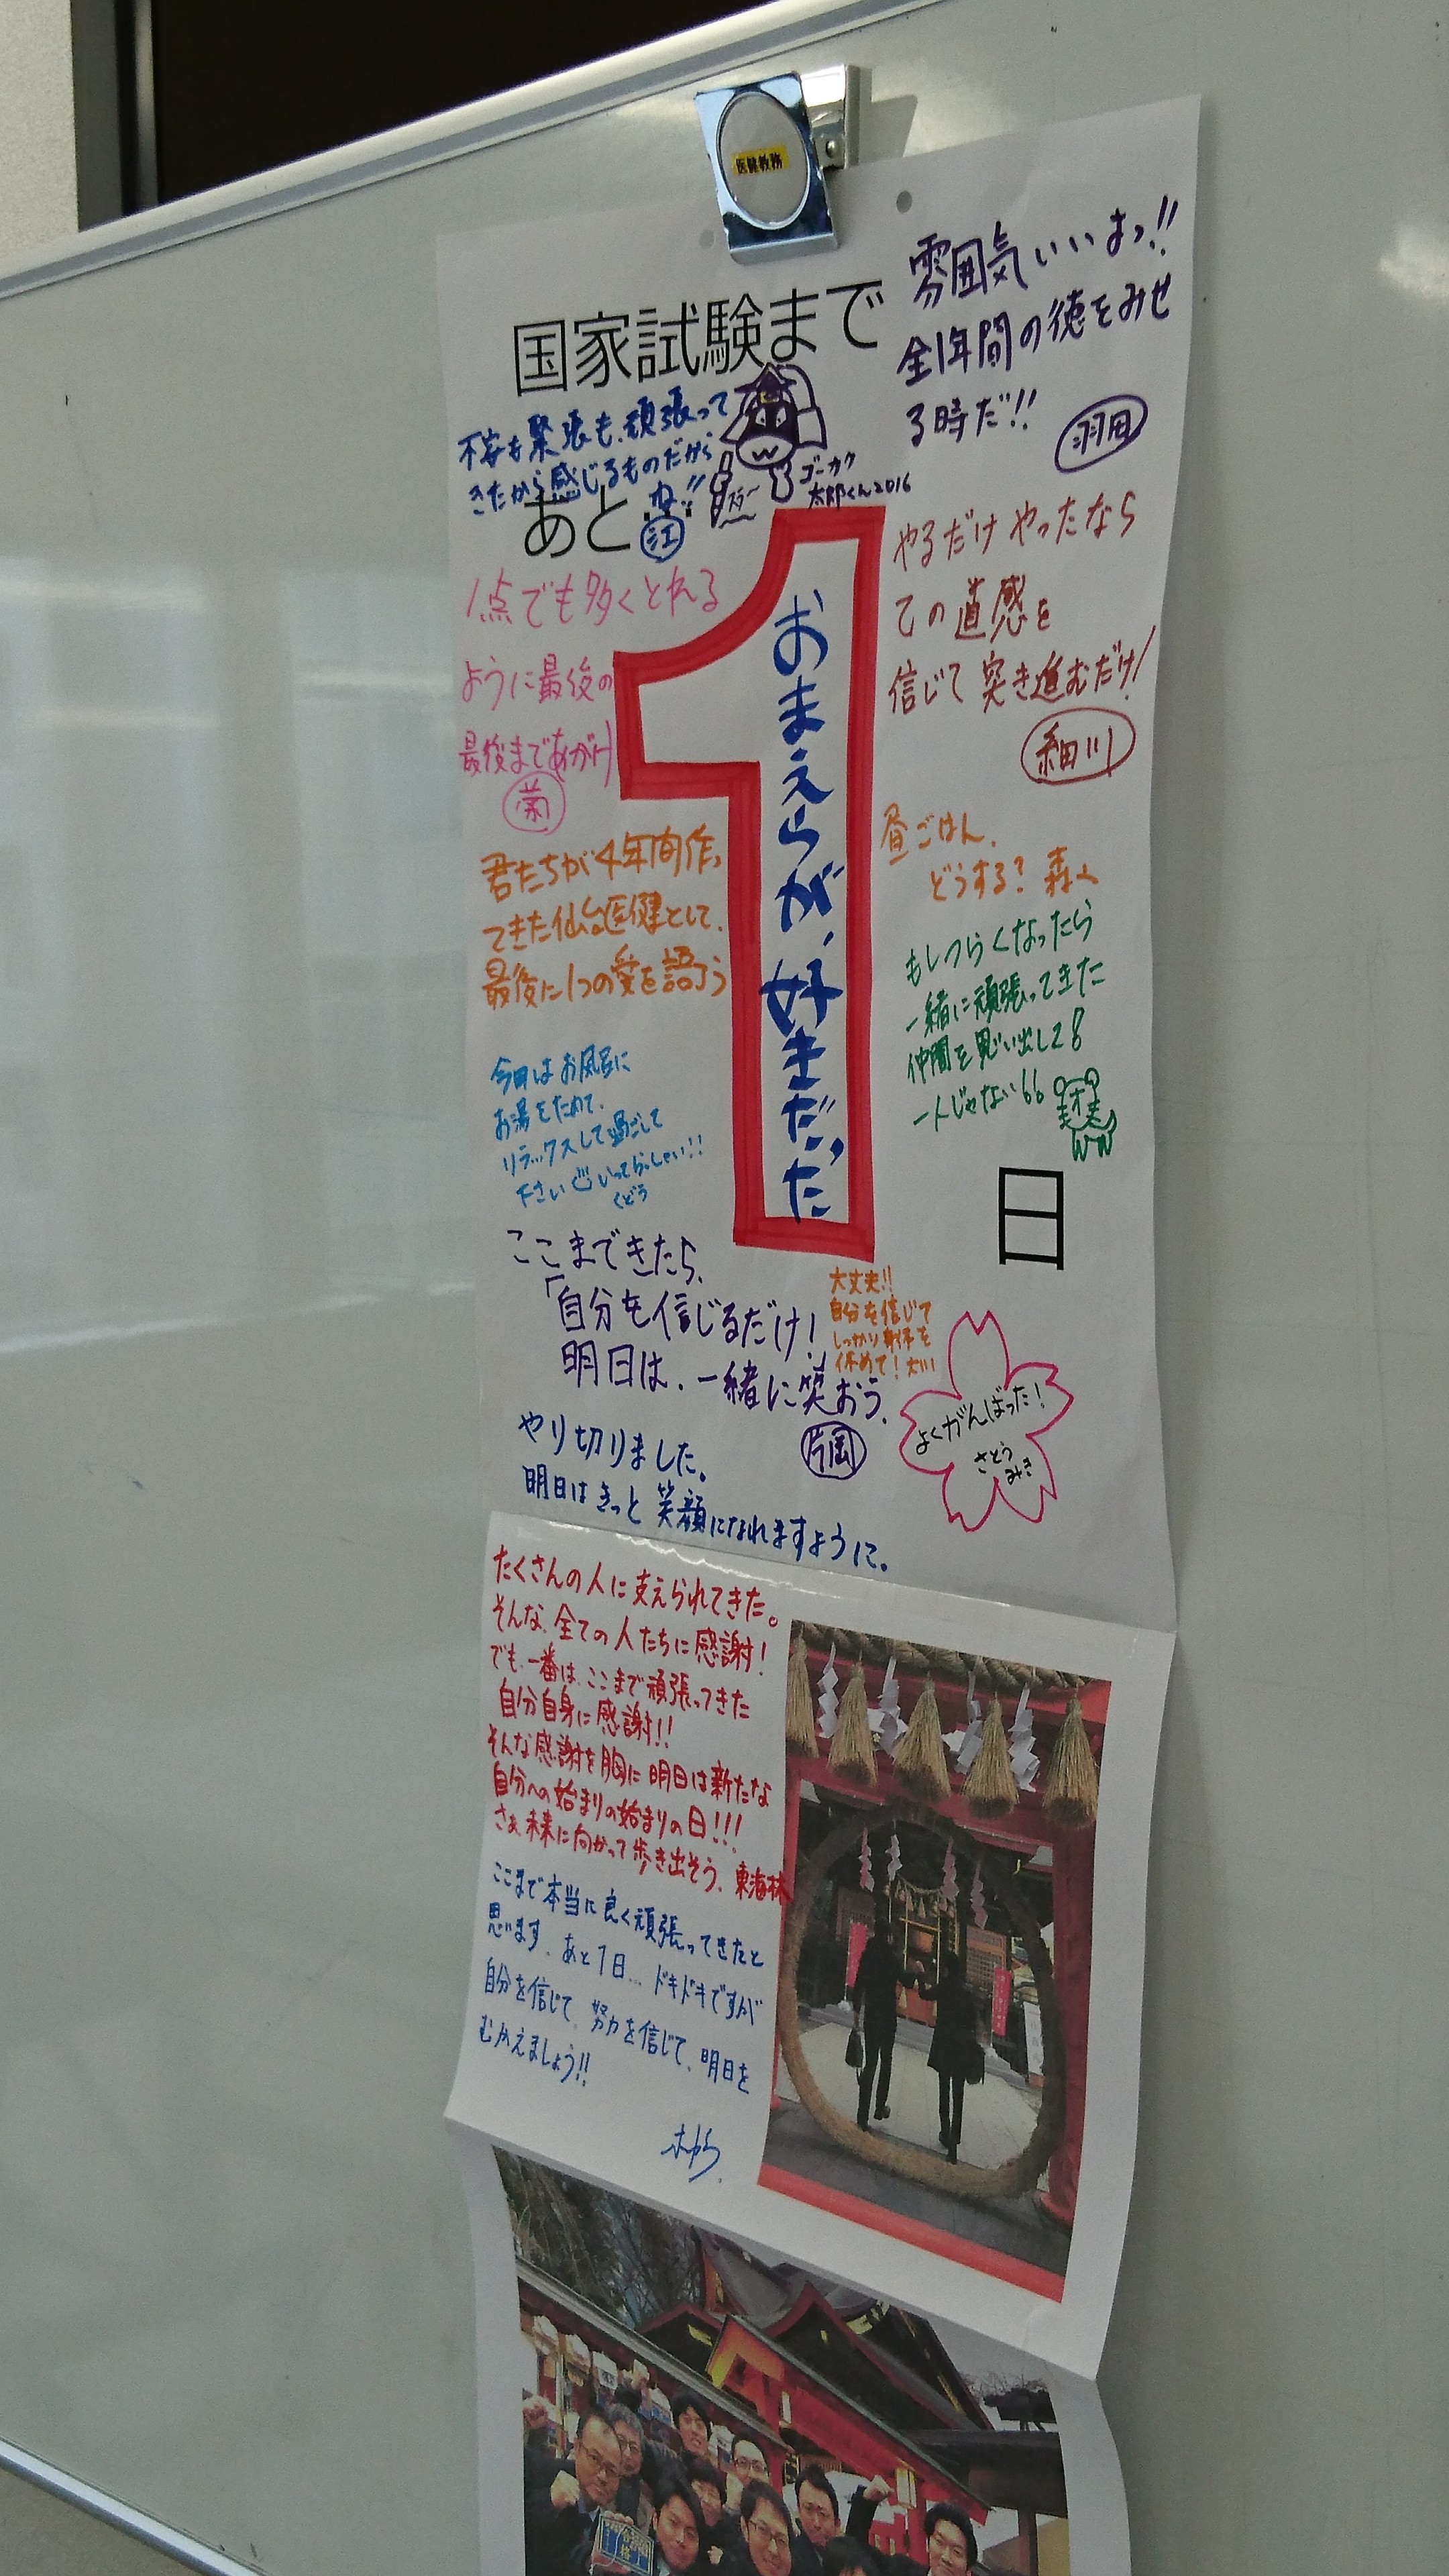 医健教務
国家試験まで
雰囲気いいよっ!!
全1年間の徳をみせ
る時だ!!
羽田
不安も緊張も、頑張って
きたから感じるものだから
ね!!
江
ゴーカク
太郎くん2016
あと...
1
おまえらが、好きだ、だ
日
1点でも多くとれる
ように最後の
最後まであがけ
菊
やるだけやったなら
ての直感を
信じて突き進むだけ!
細川
君たちが4年間作っ
てきた仙台医健として、
最後に1つの愛を語ろう
昼ごはん、
どうする?
もしつらくなったら
一緒に頑張ってきた
仲間を思い出して!
一人じゃない!!
今日はお風呂に
お湯をためて、
リラックスして過ごして
下さい いってらっしゃい!!
くどう
ここまできたら、
「自分を信じるだけ!
明日は、一緒に笑おう。
片岡
大丈夫!!
自分を信じて
しっかり身体を
休めて!
よくがんばった!
さとう
みき
やり切りました。
明日はきっと笑顔になれますように。
たくさんの人に支えられてきた。
そんな、全ての人たちに感謝!
でも、一番は、ここまで頑張ってきた
自分自身に感謝!!
そんな感謝を胸に明日は新たな
自分への始まりの始まりの日!!!
さぁ、未来に向かって歩き出そう、東海林
ここまで本当に良く頑張ってきたと
思います。あと1日... ドキドキですが
自分を信じて、努力を信じて、明日を
むかえましょう!!